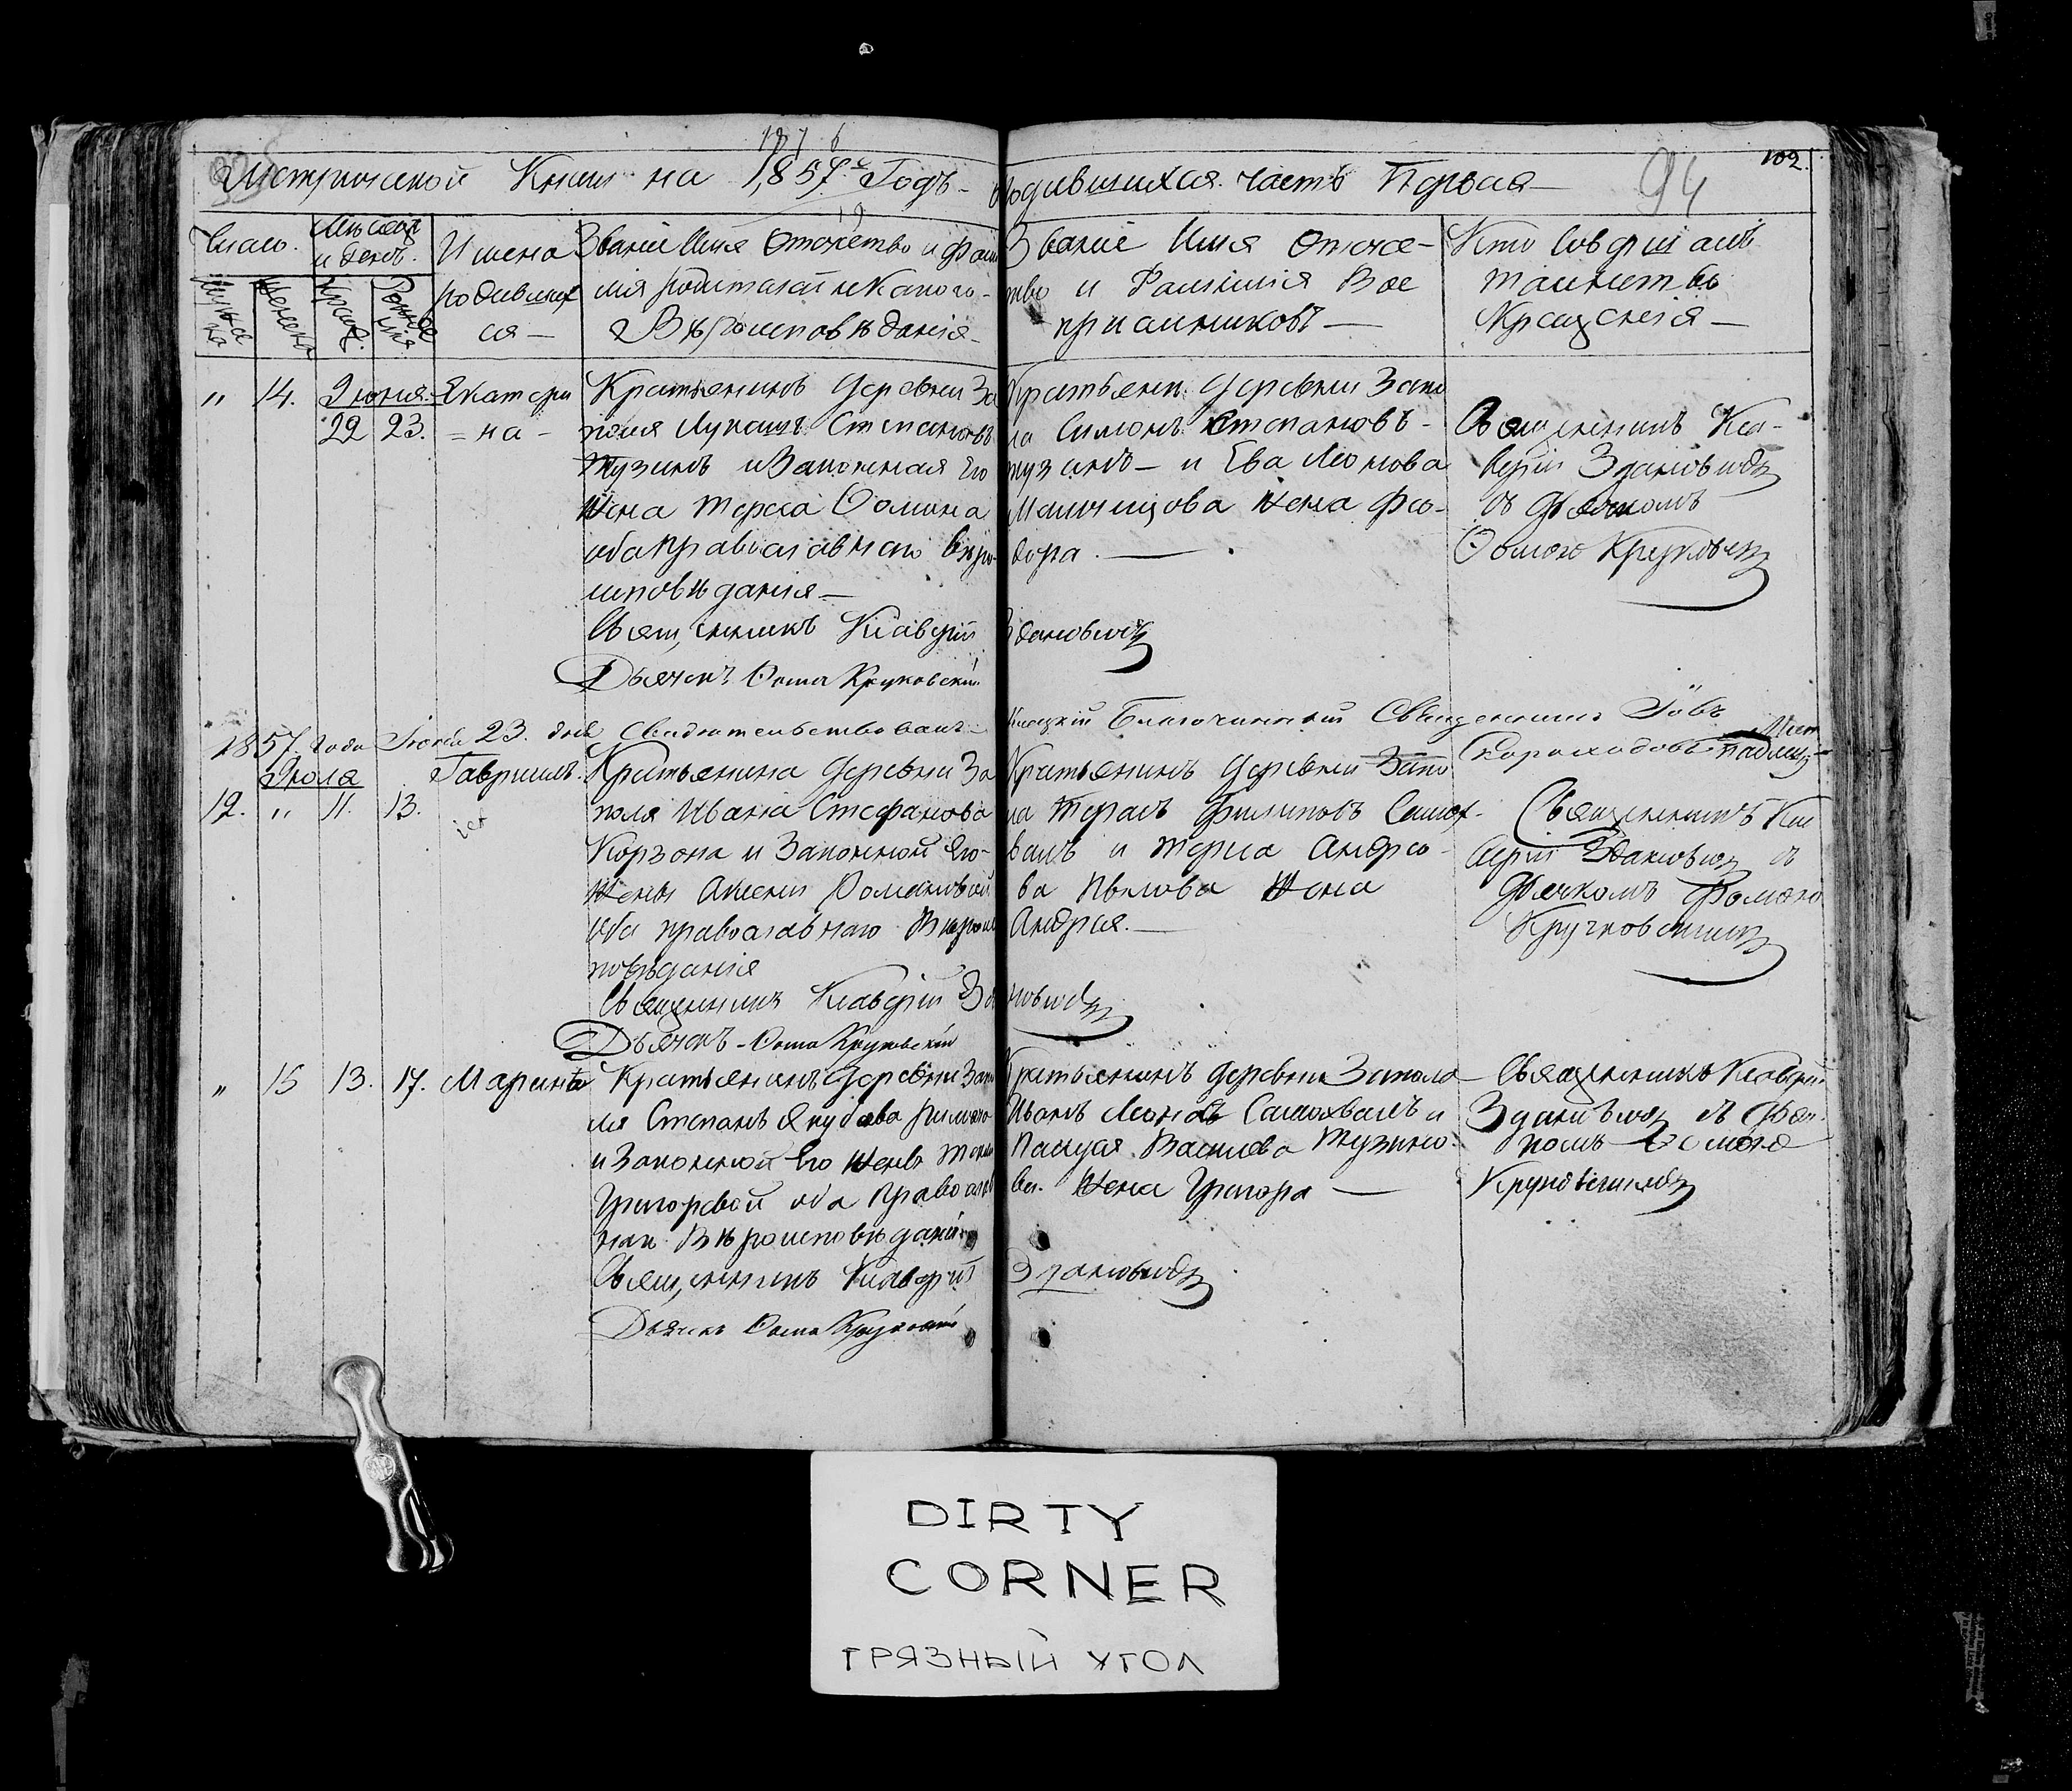 1876
Метрической Книги на 1857й Годъ - Родившихся часть Первая
94
102.
Число.
Мужска
Женска
Мѣсяцъ и день.
Крещ.
Рожде нія.
Имена
родивших
ся —
Званіе Имя Отчество и фами
лія родителей и Какого
Вѣроисповѣданія
Званіе Имя Отече-
тво и Фамилія Вос
пріемниковъ —
Кто Совершалъ
таинство
Крещенія —
" 14. Іюня
22 23.
Екатери
= на -
Крестьянинъ деревни За
поля Лукашъ Степановъ
Тузинъ и Законная Его
Жена Тереса Ѳомина
оба Православнаго Вѣро
исповѣданія —
Священникъ Ксаверій Здановичъ
Дьячекъ Ѳома Круковскій
Крестьянин деревни Запо
ла Симонъ Степановъ -
тузинъ - и Ева Леонова
жена Фео-
дора. —
Священникъ Кса-
верій Здановичъ
съ дьячкомъ
Ѳомою Круковск
1857. года Іюня 23. дня Свидѣтельствовалъ
Клецкій Благочинный Священникъ Іовъ
Іюля
12. " 11. 13.
Гавріилъ.
Крестьянина деревни За
поля Ивана Стефанова
Корзона и Законной Его
жены Романовой
оба православнаго Вѣроис
повѣданія
Священникъ Ксаверій Здановичъ
Дьячекъ - Ѳома Круковскій
Крестьянинъ деревни Запо
ла Филиповъ Самох-
валъ и Андрее-
ва Жена
Андрея. —
Священникъ Кса
верій Здановичъ съ
дьячкомъ Фомою
" 15 13. 17. Марина
Крестьянинъ деревни Запо
ля Степанъ Якубова
и Законной Его жены
Григорьевой оба Православ
наго Вѣроисповѣданія
Священникъ Ксаверій Здановичъ
Дьячекъ Ѳома Круковскій
Крестьянинъ деревни Запола
Иванъ Самохвалъ и
Василева Тузино-
ва. Жена Григора —
Священникъ Ксаверій
Здановичъ съ Дьяч
комъ Ѳомою
DIRTY
CORNER
ГРЯЗНЫЙ УГОЛ